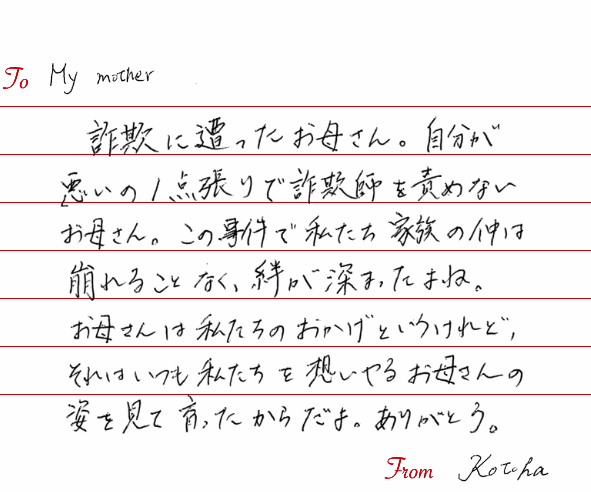 To My mother
詐欺に遭ったお母さん。自分が
悪いの1点張りで詐欺師を責めない
お母さん。この事件で私たち家族の仲は
崩れることなく、絆が深まったよね。
お母さんは私たちのおかげというけれど、
それはいつも私たちを想いやるお母さんの
姿を見て育ったからだよ。ありがとう。
From Kotoha